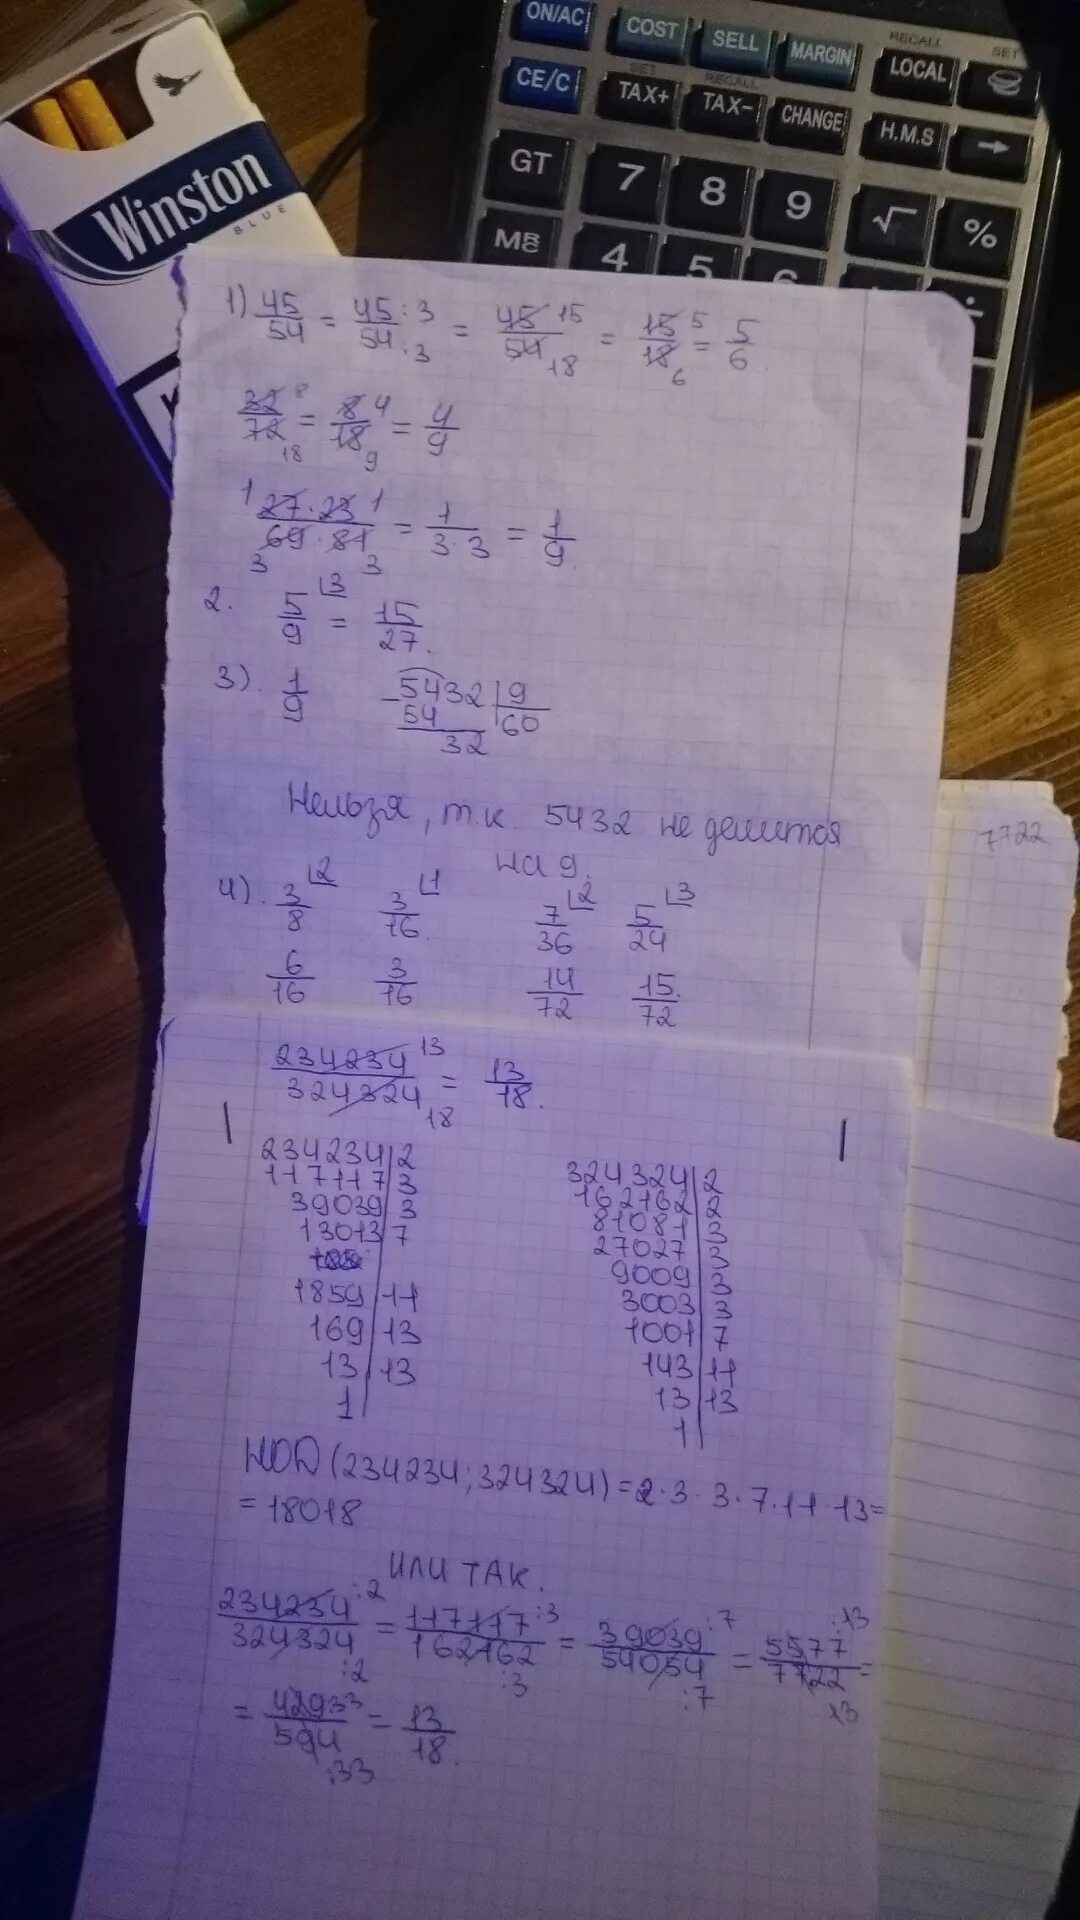 ON/AC COST SELL MARGIN RECALL LOCAL SET
CE/C SET TAX+ RECALL TAX- CHANGE H.M.S →
GT 7 8 9 √ %
4 5 6 ÷
Winston
BLUE
1) 45/54 = 45:3/54:3 = 45 15/54 18 = 15 5/18 6 = 5/6
32 8/72 18 = 8 4/18 9 = 4/9
1 27·23 1/3 69·81 3 = 1/3·3 = 1/9
2. 5/9 ⌊3 = 15/27.
3). 1/9 -5432|9
54 60
32
Нельзя, т.к. 5432 не делится
на 9.
7722
4). 3/8 ⌊2 3/16 ⌊1 7/36 ⌊2 5/24 ⌊3
6/16 3/16 14/72 15/72
234234 13/324324 18 = 13/18.
234234|2
117117|3
39039|3
13013|7
1859|11
169|13
13|13
1
324324|2
162162|2
81081|3
27027|3
9009|3
3003|3
1001|7
143|11
13|13
1
НОД (234234; 324324) = 2·3·3·7·11·13=
= 18018
или так.
234234:2/324324:2 = 117117:3/162162:3 = 39039:7/54054:7 = 5577:13/7722:13 =
= 429:33/594:33 = 13/18.